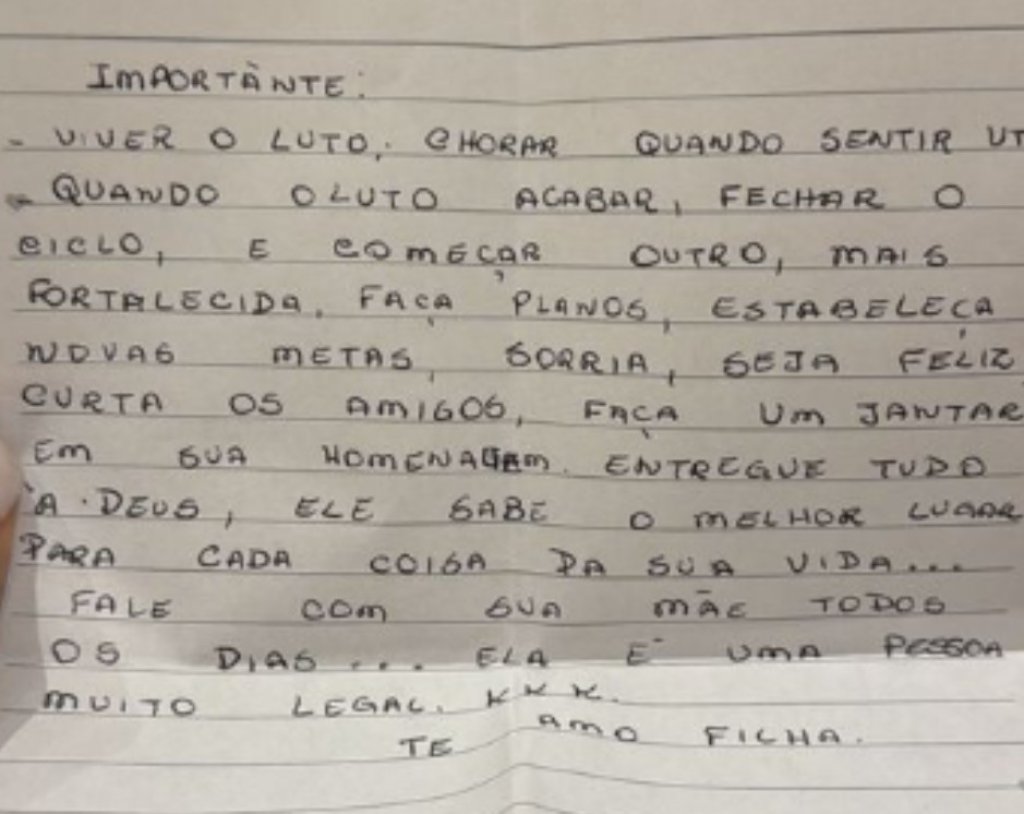 IMPORTÂNTE:
- VIVER O LUTO, CHORAR QUANDO SENTIR
- QUANDO O LUTO ACABAR, FECHAR O
CICLO, E COMEÇAR OUTRO, MAIS
FORTALECIDA. FAÇA PLANOS, ESTABELEÇA
NOVAS METAS, SORRIA, SEJA FELIZ
CURTA OS AMIGOS, FAÇA UM JANTAR
EM SUA HOMENAGEM. ENTREGUE TUDO
À DEUS, ELE SABE O MELHOR LUGAR
PARA CADA COISA DA SUA VIDA...
FALE COM SUA MÃE TODOS
OS DIAS... ELA É UMA PESSOA
MUITO LEGAL. KKK.
TE AMO FILHA.